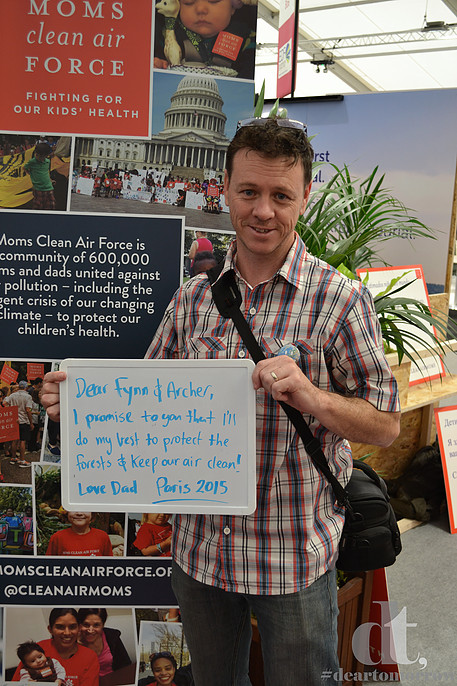 MOMS
clean air
FORCE
FIGHTING FOR
OUR KIDS' HEALTH
Moms Clean Air Force is
community of 600,000
ms and dads united against
pollution – including the
gent crisis of our changing
climate – to protect our
children's health.
Dear Fynn & Archer,
I promise to you that I'll
do my best to protect the
forests & keep our air clean!
Love Dad Paris 2015
MOMSCLEANAIRFORCE.OR
@CLEANAIRMOMS
dt,
#deartomorrow